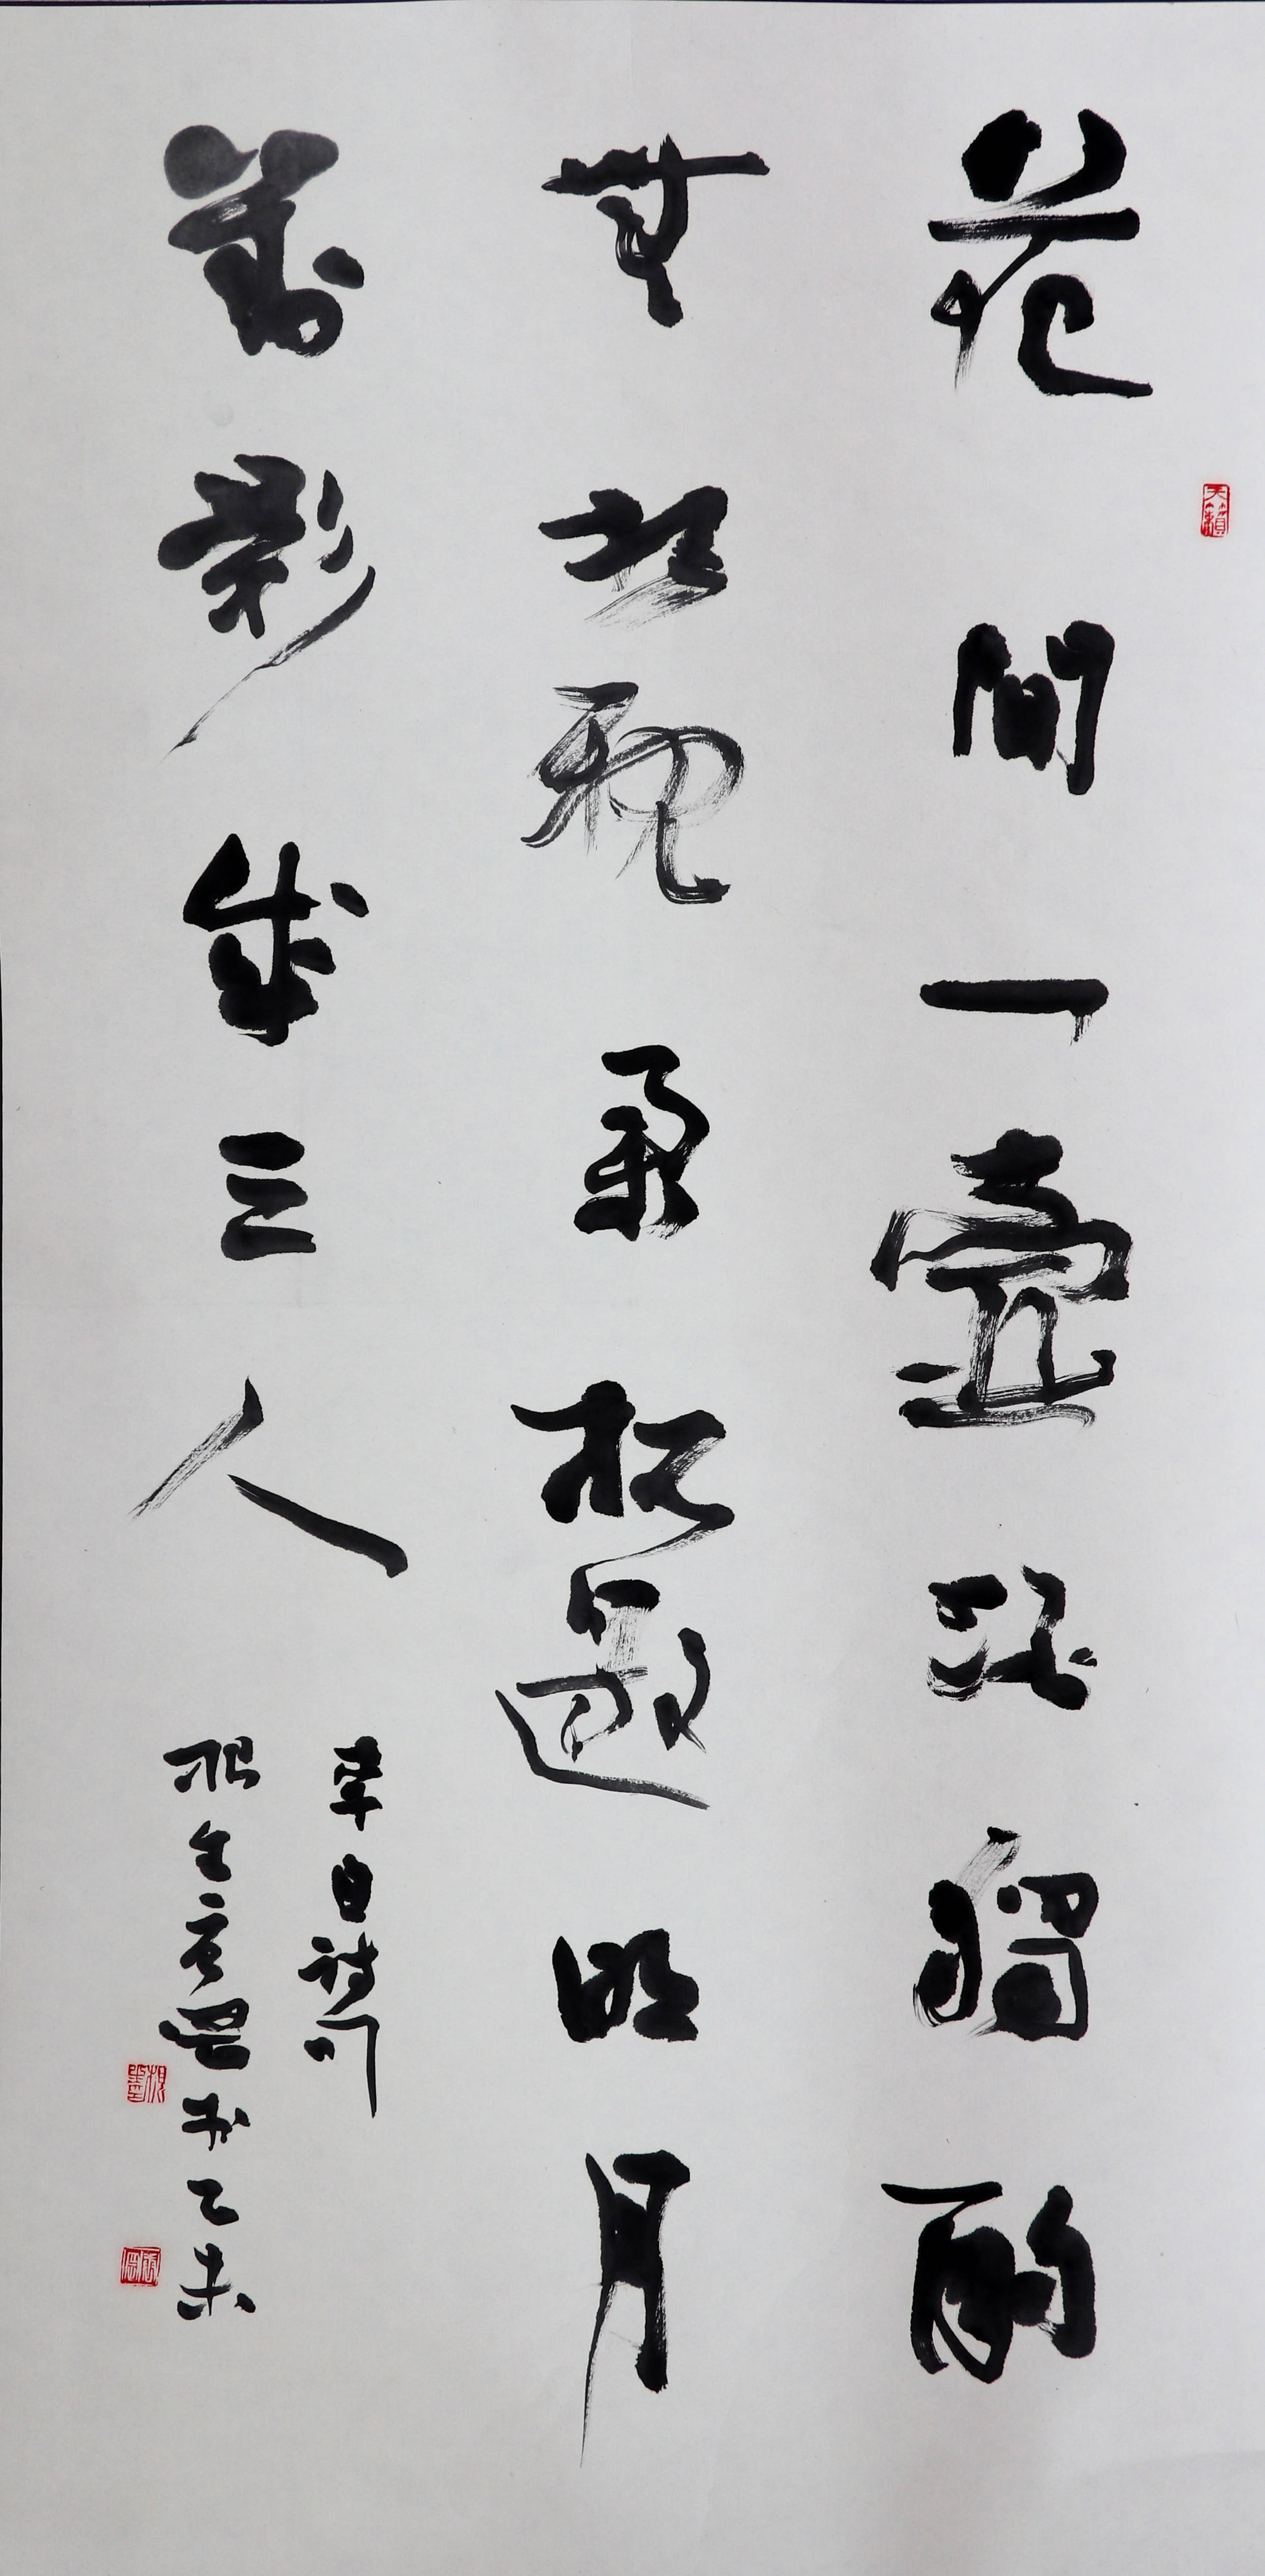 天籟
花間一壺酒獨酌
無相親舉杯邀明月
對影成三人
李白詩
書乙未